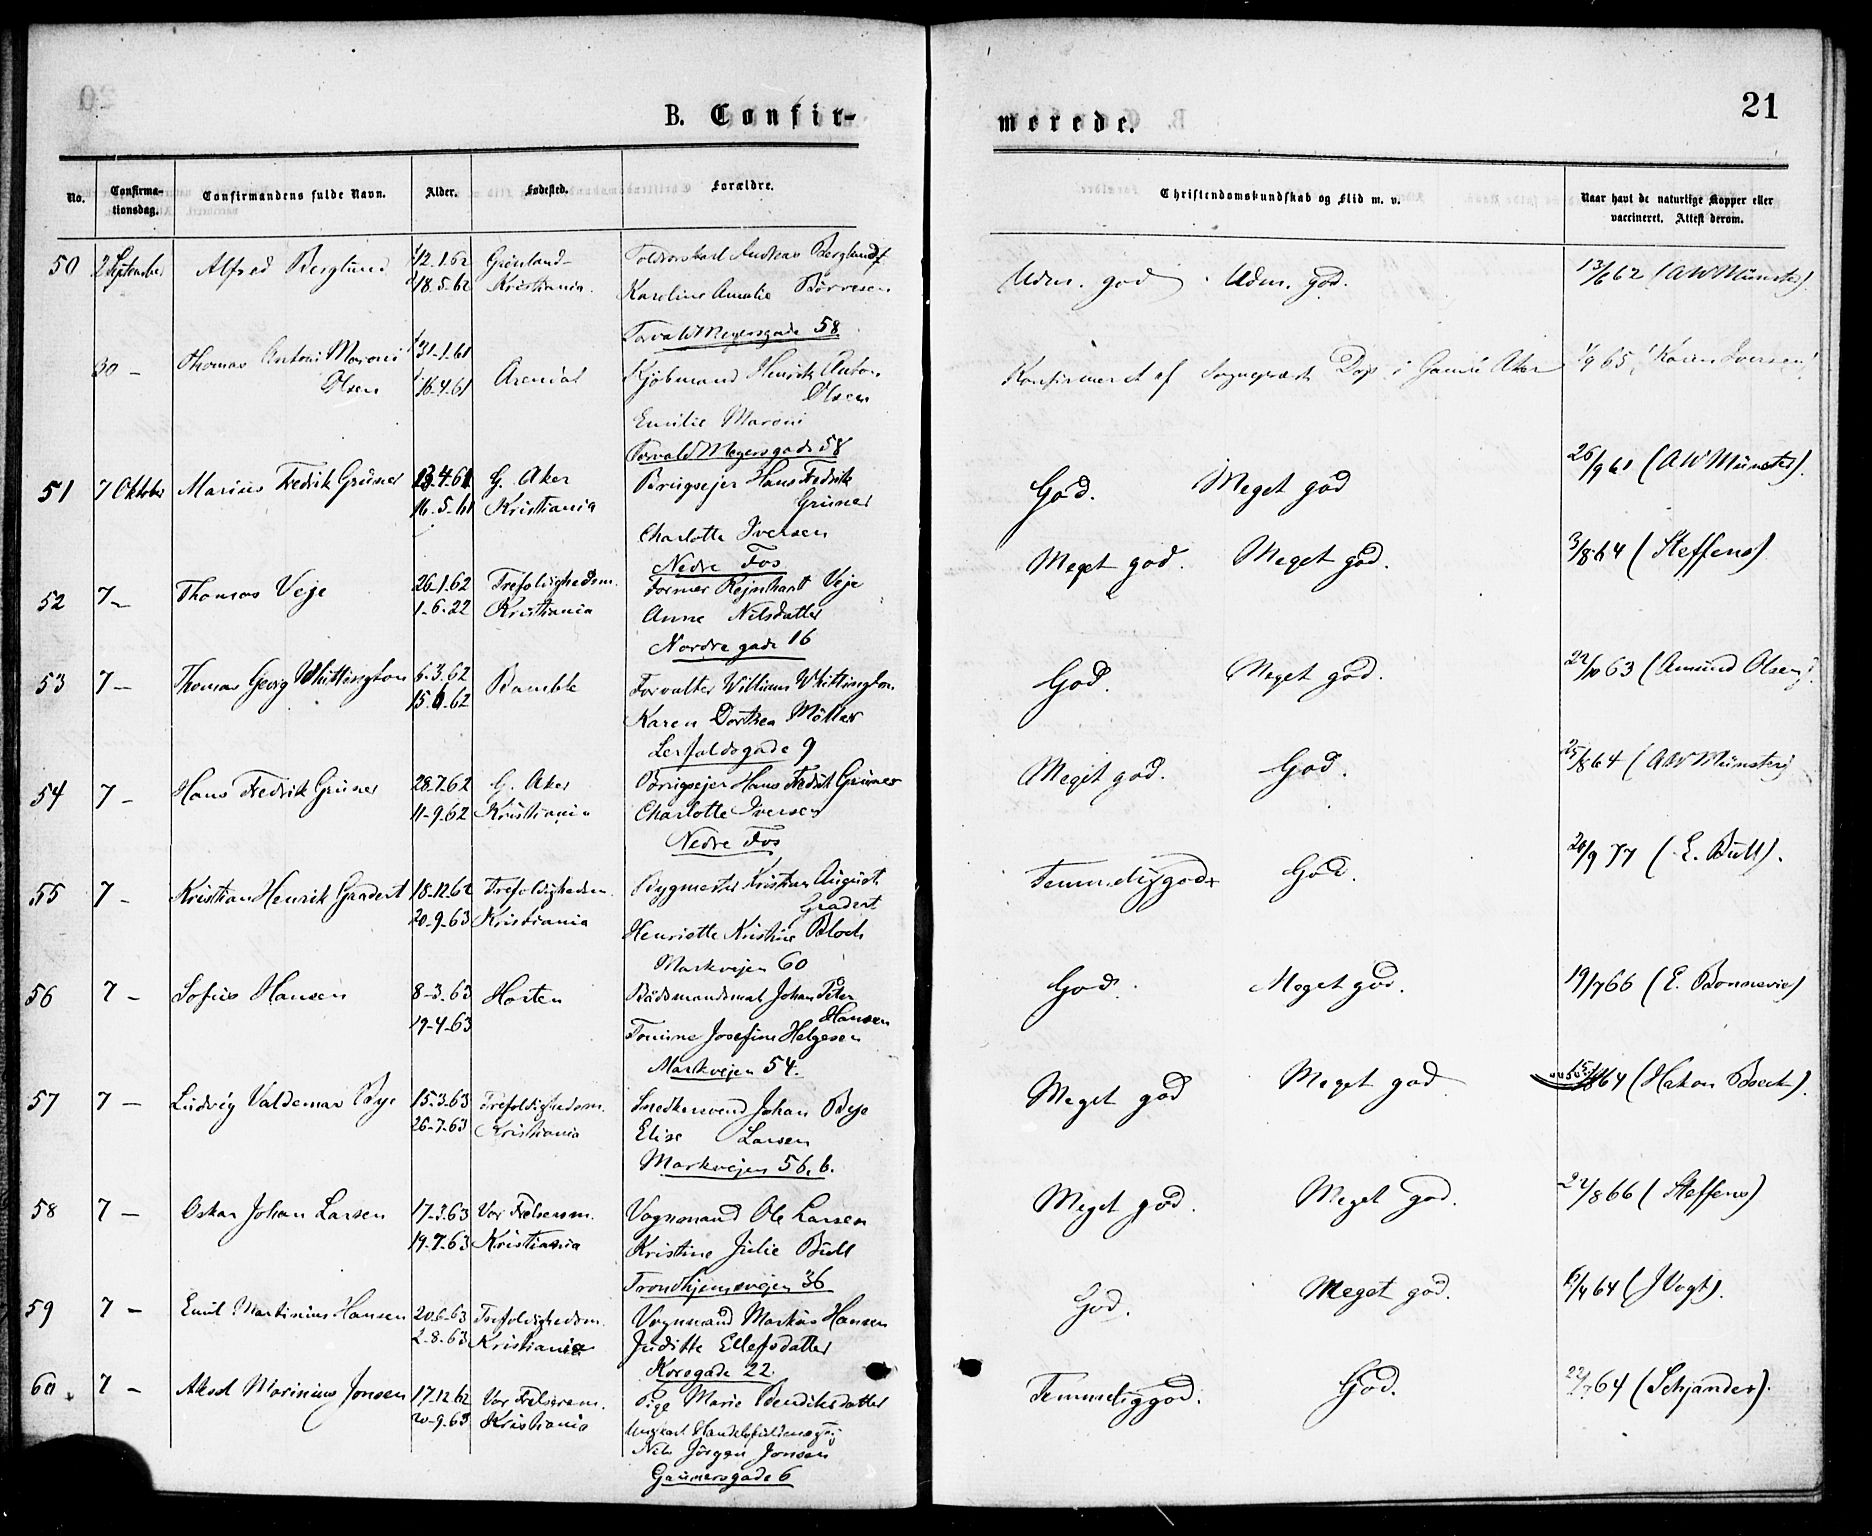 B. Confir-
merede.
21
No.
Confirma-
tionsdag.
Confirmandens fulde Navn.
Alder.
Fødested.
Forældre.
Christendomskundskab og Flid m. v.
Naar havt de naturlige Kopper eller
vaccineret. Attest derom.
50 2 September Alfred Berglund 12.1.62 Grønland- Andreas Berglund Udm. god Udm. god. 13/6 62 (AW Münster).
18.5.62 Kristiania. Karoline Amalie Börresen
Torvald Meyersgade 58
30 - Thomas Antoni Maroni 31-1.61 Arendal Kjöbmand Henrik Anton Konfirmeret af Sogneprest i Gamle Aker 1/9 65, (Karen Iversen)
Olsen 16-4.61 Olsen
Emilie Maroni
Torvald Meyersgade 58
51 7 Oktober Marius Fredrik Grüner 13-4.61 G. Aker Brugsejer Hans Fredrik God. Meget god 26/9 61 (AW Münster).
16-5-61 Kristiania Grüner
Charlotte Iversen
Nedre Fos
52 7- Thomas Veje 26-1.62 Trefoldighedsm. Former Rejnhart Veje Meget god. Meget god. 3/8 64 (Steffens)
1-6-22 Kristiania Anne Nilsdatter
Nordregade 16
53 7- Thomas Georg Whittington 6-3.62 Bamble Forvalter William Whittington God. Meget god. 22/10 63 (Amund Olsen).
15.6.62 Karen Dorthea Möller
Lerfaldsgade 9
54 7- Hans Fredrik Grüner 28.7.62 G. Aker Brugsejer Hans Fredrik Grüner Meget god. God. 25/8 64 (AW Münster)
11-9.62 Kristiania Charlotte Iversen
Nedre Fos
55 7- Kristian Henrik Gradert 18-12.62 Trefoldighedsm. Bygmester Kristian August Temmeliggod God. 20/9 77 (E. Bull).
20-9.63 Kristiania Gradert
Henriette Kristine Bloch
Markvejen 60
56 7- Sofus Hansen 8-3.63 Horten Bådsmandsmat Johan Peter God. Meget god. 19/7 66 (E. Bonnevie)
19-4-63 Hansen
Tomine Josefine Helgesen
Markvejen 54.
57 7- Ludvig Valdemar Bye 15-3.63 Trefoldighedsm. Snedkersvend Johan Bye Meget god Meget god 64 (Hakon Boeck).
26-7-63 Kristiania Elise Larsen
Markvejen 56.b.
58 7- Oskar Johan Larsen 17-3.63 Vor Frelsersm. Vognmand Ole Larsen Meget god. Meget god. 22/8 66 (Steffens)
19-7-63 Kristiania Kristine Julie Bull
Trondhjemsvejen 36
59 7- Emil Martinius Hansen 20.6-63 Trefoldighedsm. Vognmand Markus Hansen God. Meget god. 6/4 64 (J Vogt).
2-8-63 Kristiania Juditte Ellefsdatter
Korsgade 22.
60. 7- Aksel Marinius Jonsen 17.12.62 Vor Frelsersm. Pige Marie Bendiksdatter Temmeliggod. God. 22/7 64 (Schjander).
20-9.63 Kristiania Ungkarl
Nils Jörgen Jonsen
Grünersgade 6